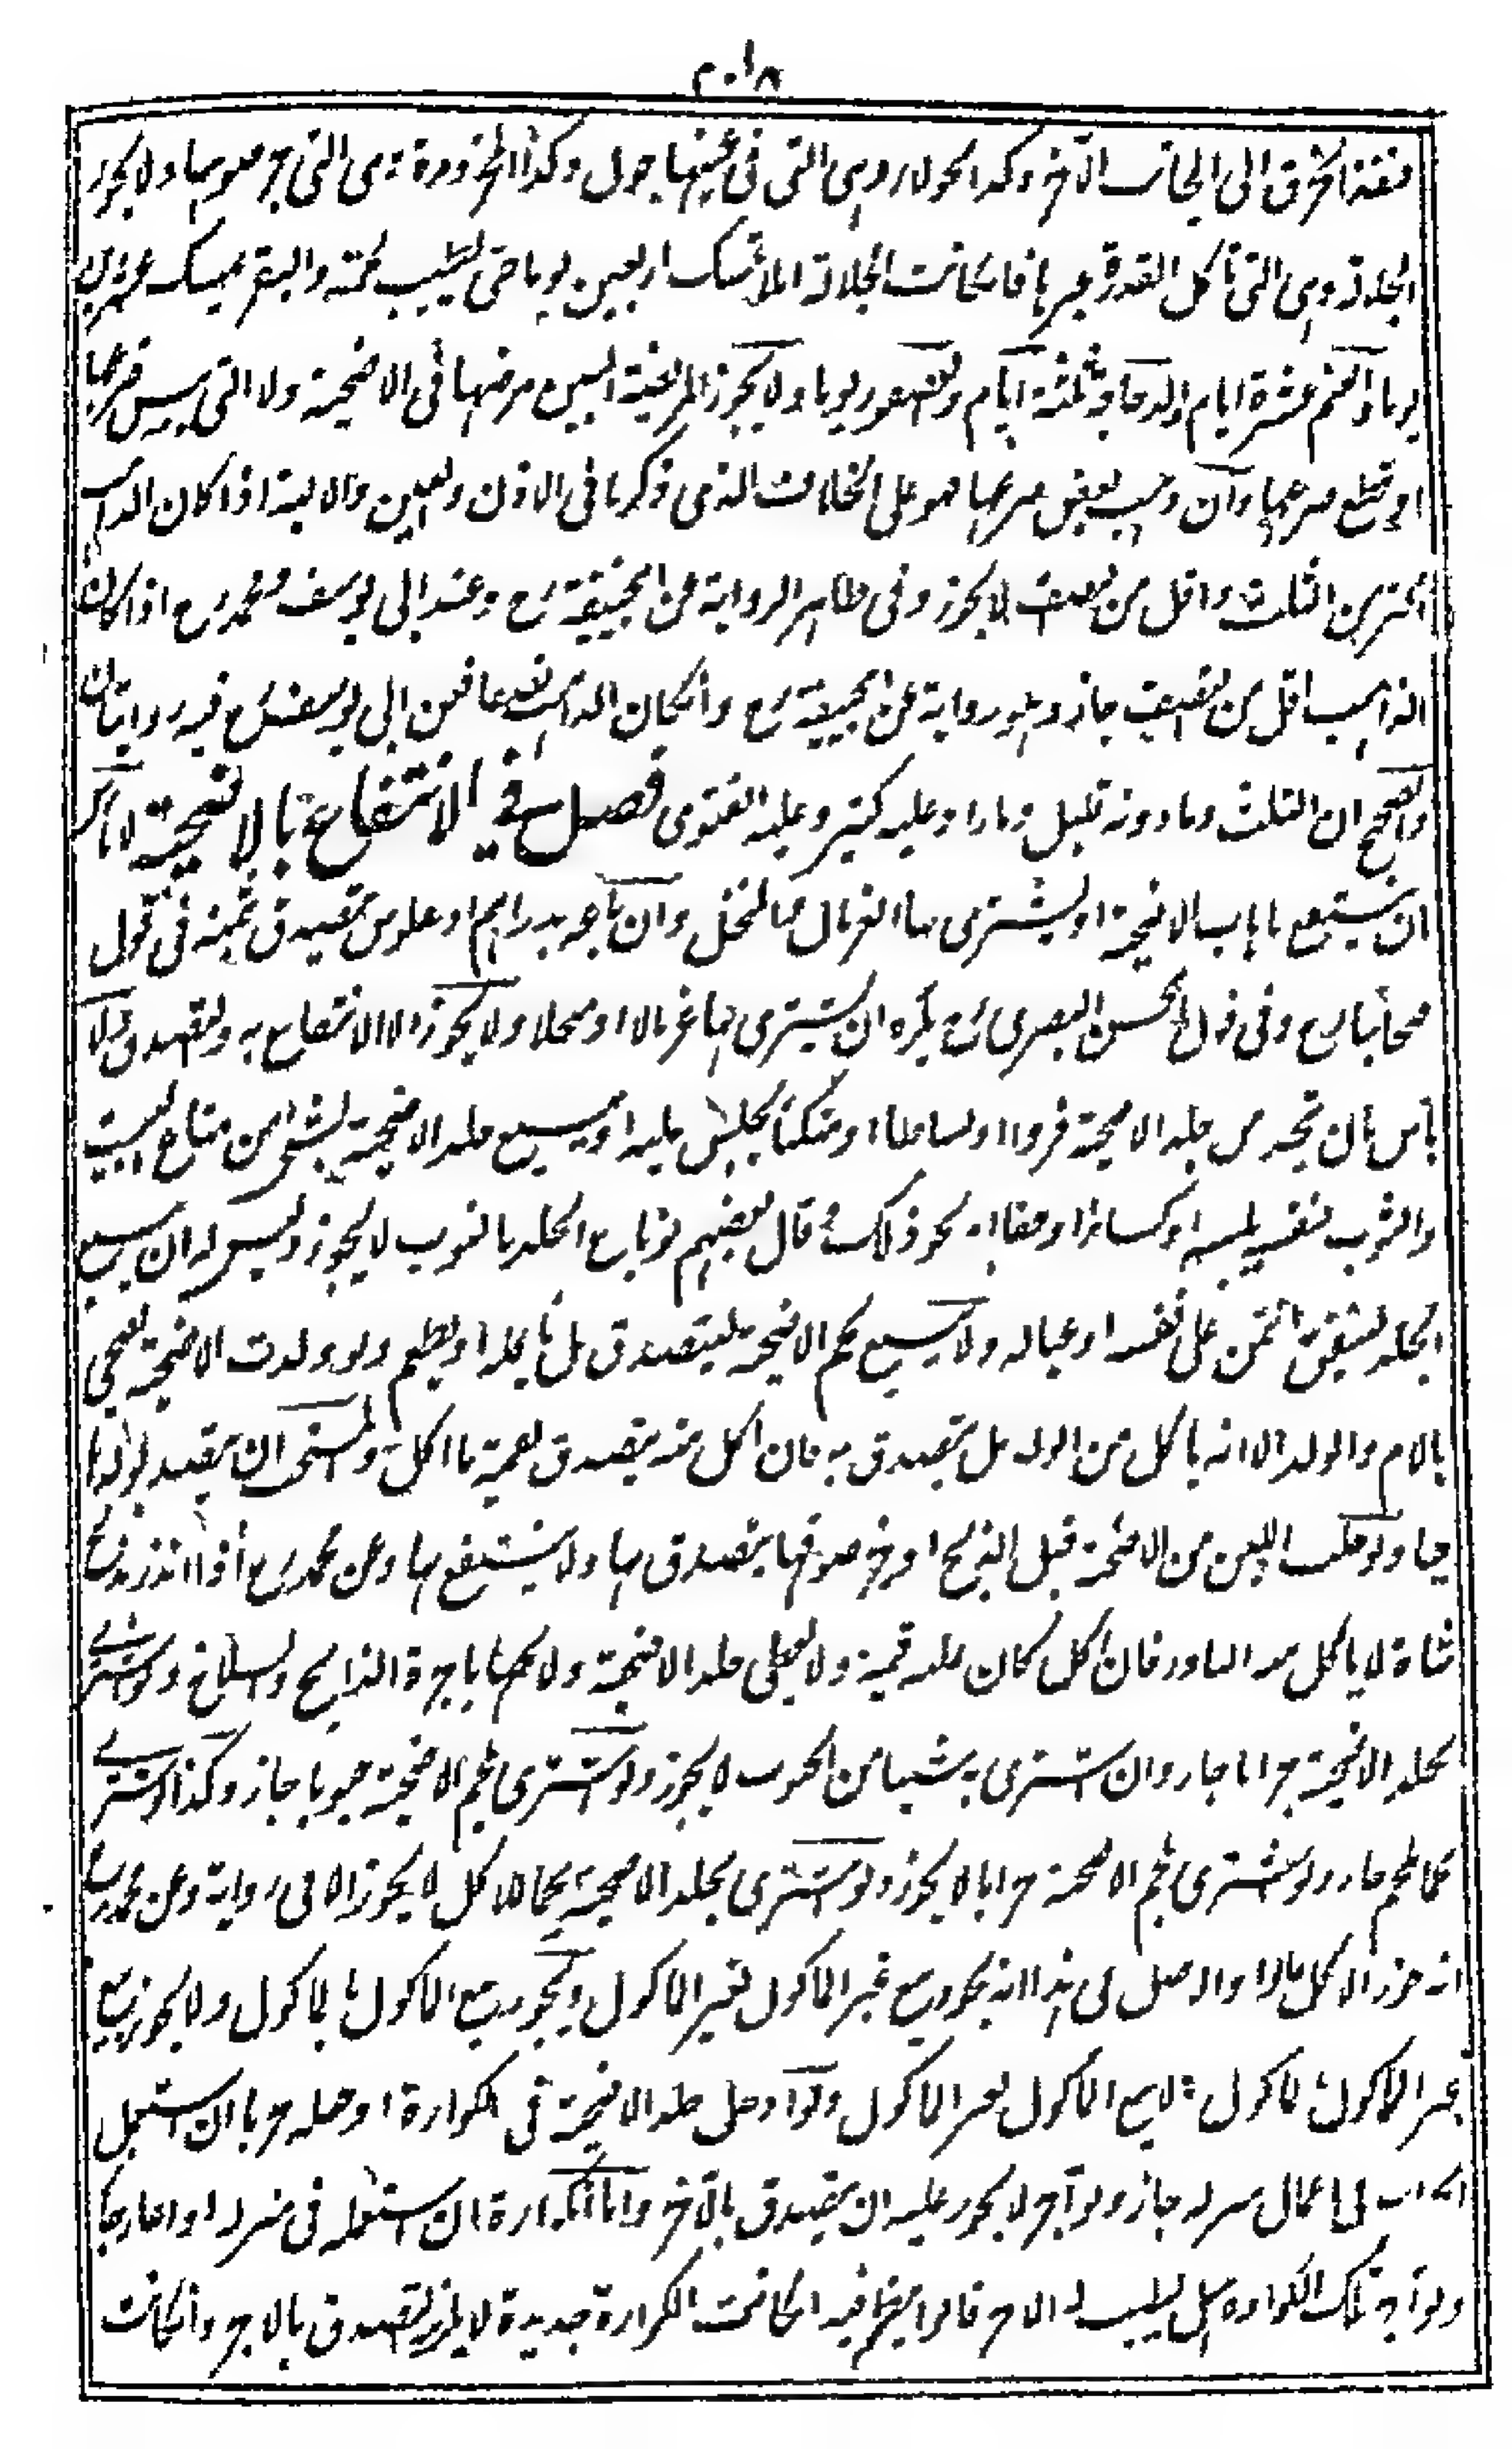 منفذ الخرق الى الجانب الآخر وكذا الحولاء وهى التى فى عينها حول وكذا المجزوزة وهى التى جز صوفها ولا يجوز
الجلالة وهى التى تأكل العذرة غيرها فان كانت الجلالة ابلا تمسك اربعين يوما حتى يطيب لحمه والبقر يمسك عشرين
يوما والغنم عشرة ايام والدجاجة ثلثة ايام والعصفور يوما ولا يجوز المريضة البين مرضها فى الاضحية ولا التى يبس ضرعها
او قطع ضرعها وان ذهب بعض ضرعها فهو على الخلاف الذى ذكرنا فى الاذن والعين والالية اذا كان الذاهب
اكثر من الثلث واقل من النصف لا يجوز وفى ظاهر الرواية عن ابيحنيفة رح وعند ابى يوسف ومحمد رح اذا كان
الذاهب اقل من النصف جاز وهو رواية عن ابيحنيفة رح وانكان الذاهب نصفا فعن ابى يوسف رح فيه روايتان
والصحيح ان الثلث وما دونه قليل وما زاد عليه كثير وعليه الفتوى فصل فى الانتفاع بالاضحية لا باس
ان ينتفع باهاب الاضحية او يشترى بها الغربال والمنخل وان باعه بدراهم او فلوس يتصدق بثمنه فى قول
اصحابنا رح وفى قول الحسن البصرى رح يكره ان يشترى بها غربالا او منخلا ولا يجوز الا الانتفاع به والتصدق ولا
بأس بان يتخذ من جلد الاضحية فروا او بساطا او متكئا يجلس عليه او يبيع جلد الاضحية بشئ من متاع البيت
والثوب لنفسه يلبسه او كساء او خفا او نحو ذلك وقال بعضهم لو باع الجلد بالثوب لا يجوز وليس له ان يبيع
الجلد لينفق الثمن على نفسه او عياله ولا يبيع لحم الاضحية بل يتصدق بل يأكله او يطعم ولو ولدت الاضحية يضحى
بالام والولد الا انه لا ياكل من الولد بل يتصدق به فان اكل منه يتصدق بقيمة ما اكل والمستحب ان يتصدق بولدها
حيا ولو حلب اللبن من الاضحية قبل الذبح او جز صوفها يتصدق بها ولا ينتفع بها وعن محمد رح اذا نذر ذبح
شاة لا ياكل منه الناذر فان اكل كان عليه قيمته ولا يعطى جلد الاضحية ولا لحمها باجرة الذابح والسلاخ ولو اشترى
بجلد الاضحية جرابا جاز وان اشترى به شيئا من الحبوب لا يجوز ولو اشترى بلحم الاضحية حبوبا جاز وكذا لو اشترى
لحما بلحم جاز ولو اشترى بلحم الاضحية جرابا لا يجوز ولو اشترى بجلد الاضحية لحما للاكل لا يجوز الا فى رواية وعن محمد رح
انه جوز الاكل والاصل فى هذا انه يجوز بيع غير الماكول بغير الماكول ويجوز بيع الماكول بالماكول ولا يجوز بيع
غير الماكول بالماكول ولا بيع الماكول بغير الماكول ولو دخل جلد الاضحية فى الكوارة او جعله جرابا ان استعمل
الجراب فى اعمال منزله جاز ولو آجر لا يجوز عليه ان يتصدق بالآجر واما الكوارة ان استعمله فى منزله او اعار جاز
ولو آجر تلك الكوارة هل يطيب له الاجر قالوا ينظر فيه انكانت الكوارة جديدة لا يلزمه التصدق بالاجر وانكانت